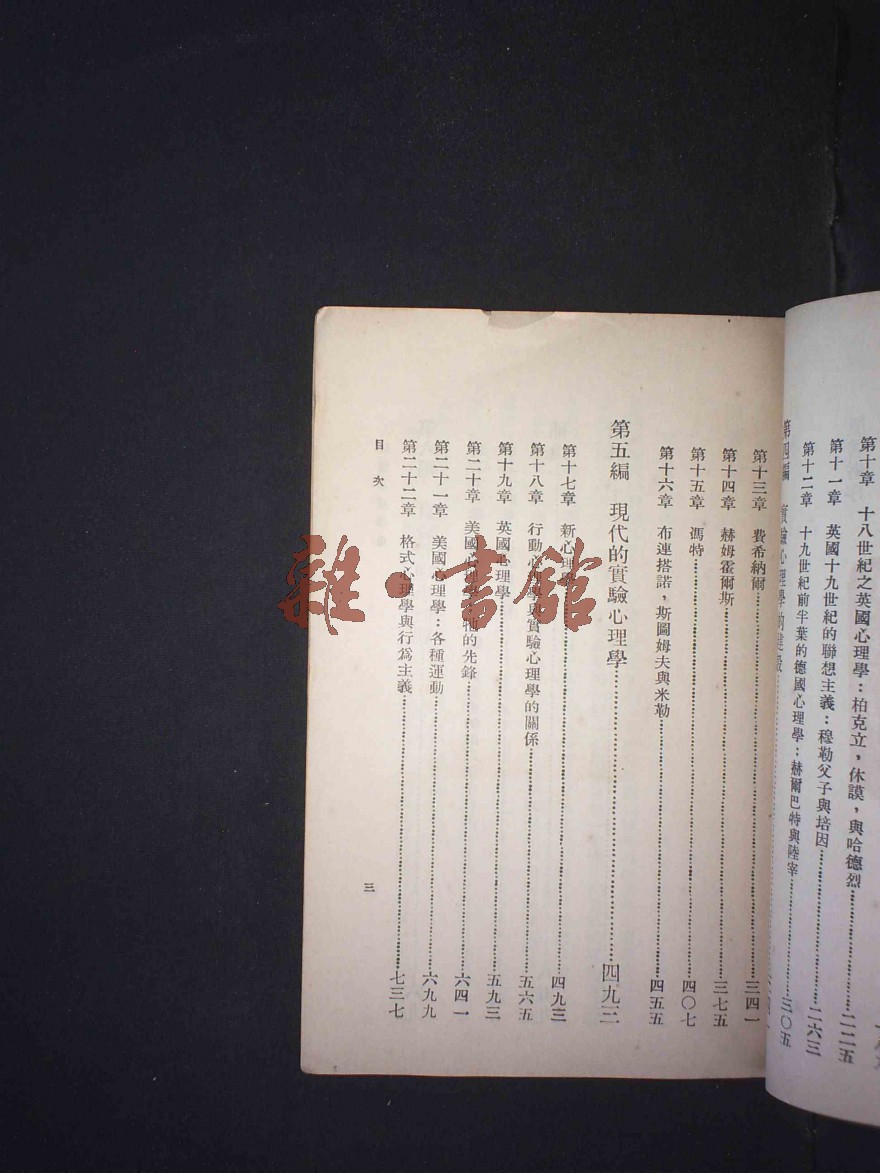 第十章 十八世紀之英國心理學：柏克立，休謨，與哈德烈
第十一章 英國十九世紀的聯想主義：穆勒父子與培因……二二五
第十二章 十九世紀前半葉的德國心理學：赫爾巴特與陸宰……二六三
第四編 實驗心理學的建設……三〇五
第十三章 費希納爾……三四一
第十四章 赫姆霍爾斯……三七五
第十五章 馮特……四〇七
第十六章 布連搭諾，斯圖姆夫與米勒……四五五
第五編 現代的實驗心理學……四九三
第十七章 新心理學……四九三
第十八章 行動心理學與實驗心理學的關係……五六五
第十九章 英國心理學……五九三
第二十章 美國心理學：牠的先鋒……六四一
第二十一章 美國心理學：各種運動……六九九
第二十二章 格式心理學與行為主義……七三七
目次
三
雜·書館